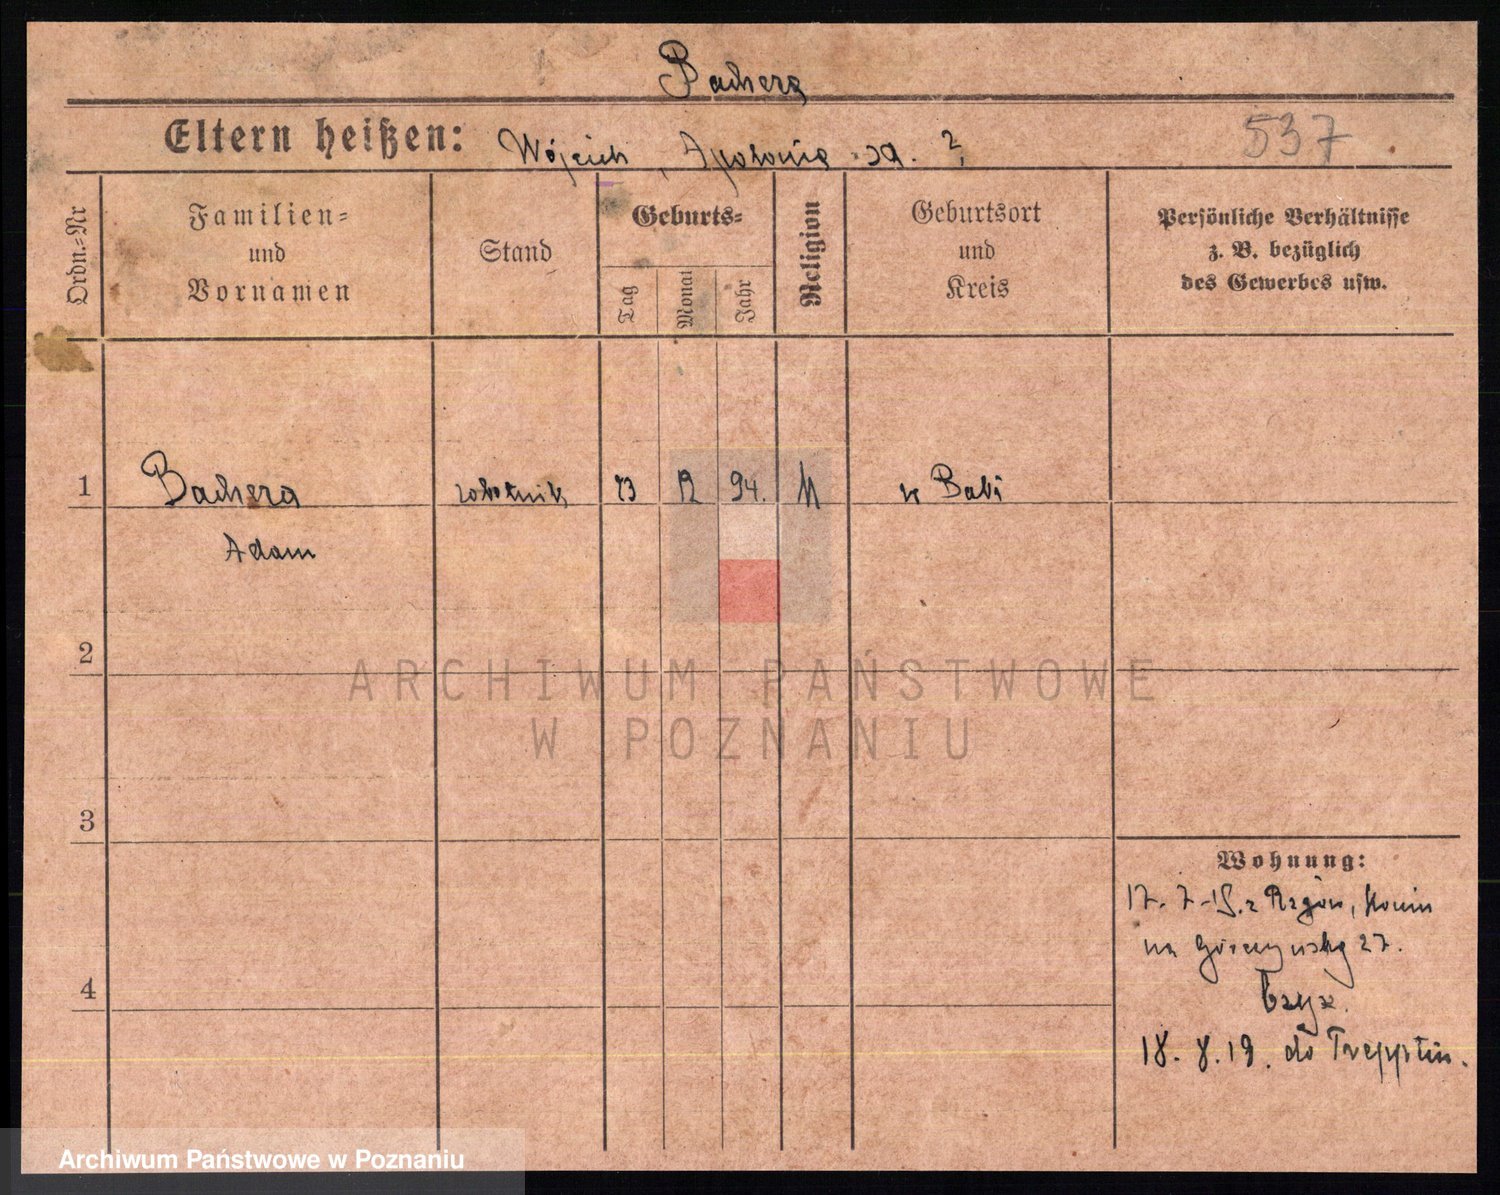 Bachera
Eltern heißen: Wojciech, Apolonia zd. ?
537
Ordn.=Nr
Familien=
und
Vornamen
Stand
Geburts=
Tag
Monat
Jahr
Religion
Geburtsort
und
Kreis
Persönliche Verhältnisse
z. B. bezüglich
des Gewerbes usw.
1 Bachera robotnik 23 12 94. k Babi
Adam
2
ARCHIWUM PAŃSTWOWE
W POZNANIU
3
Wohnung:
17. 7-15. z Rzgów, Konin
na Górczyńską 27.
4
18. 8. 19. do Trepptin.
Archiwum Państwowe w Poznaniu